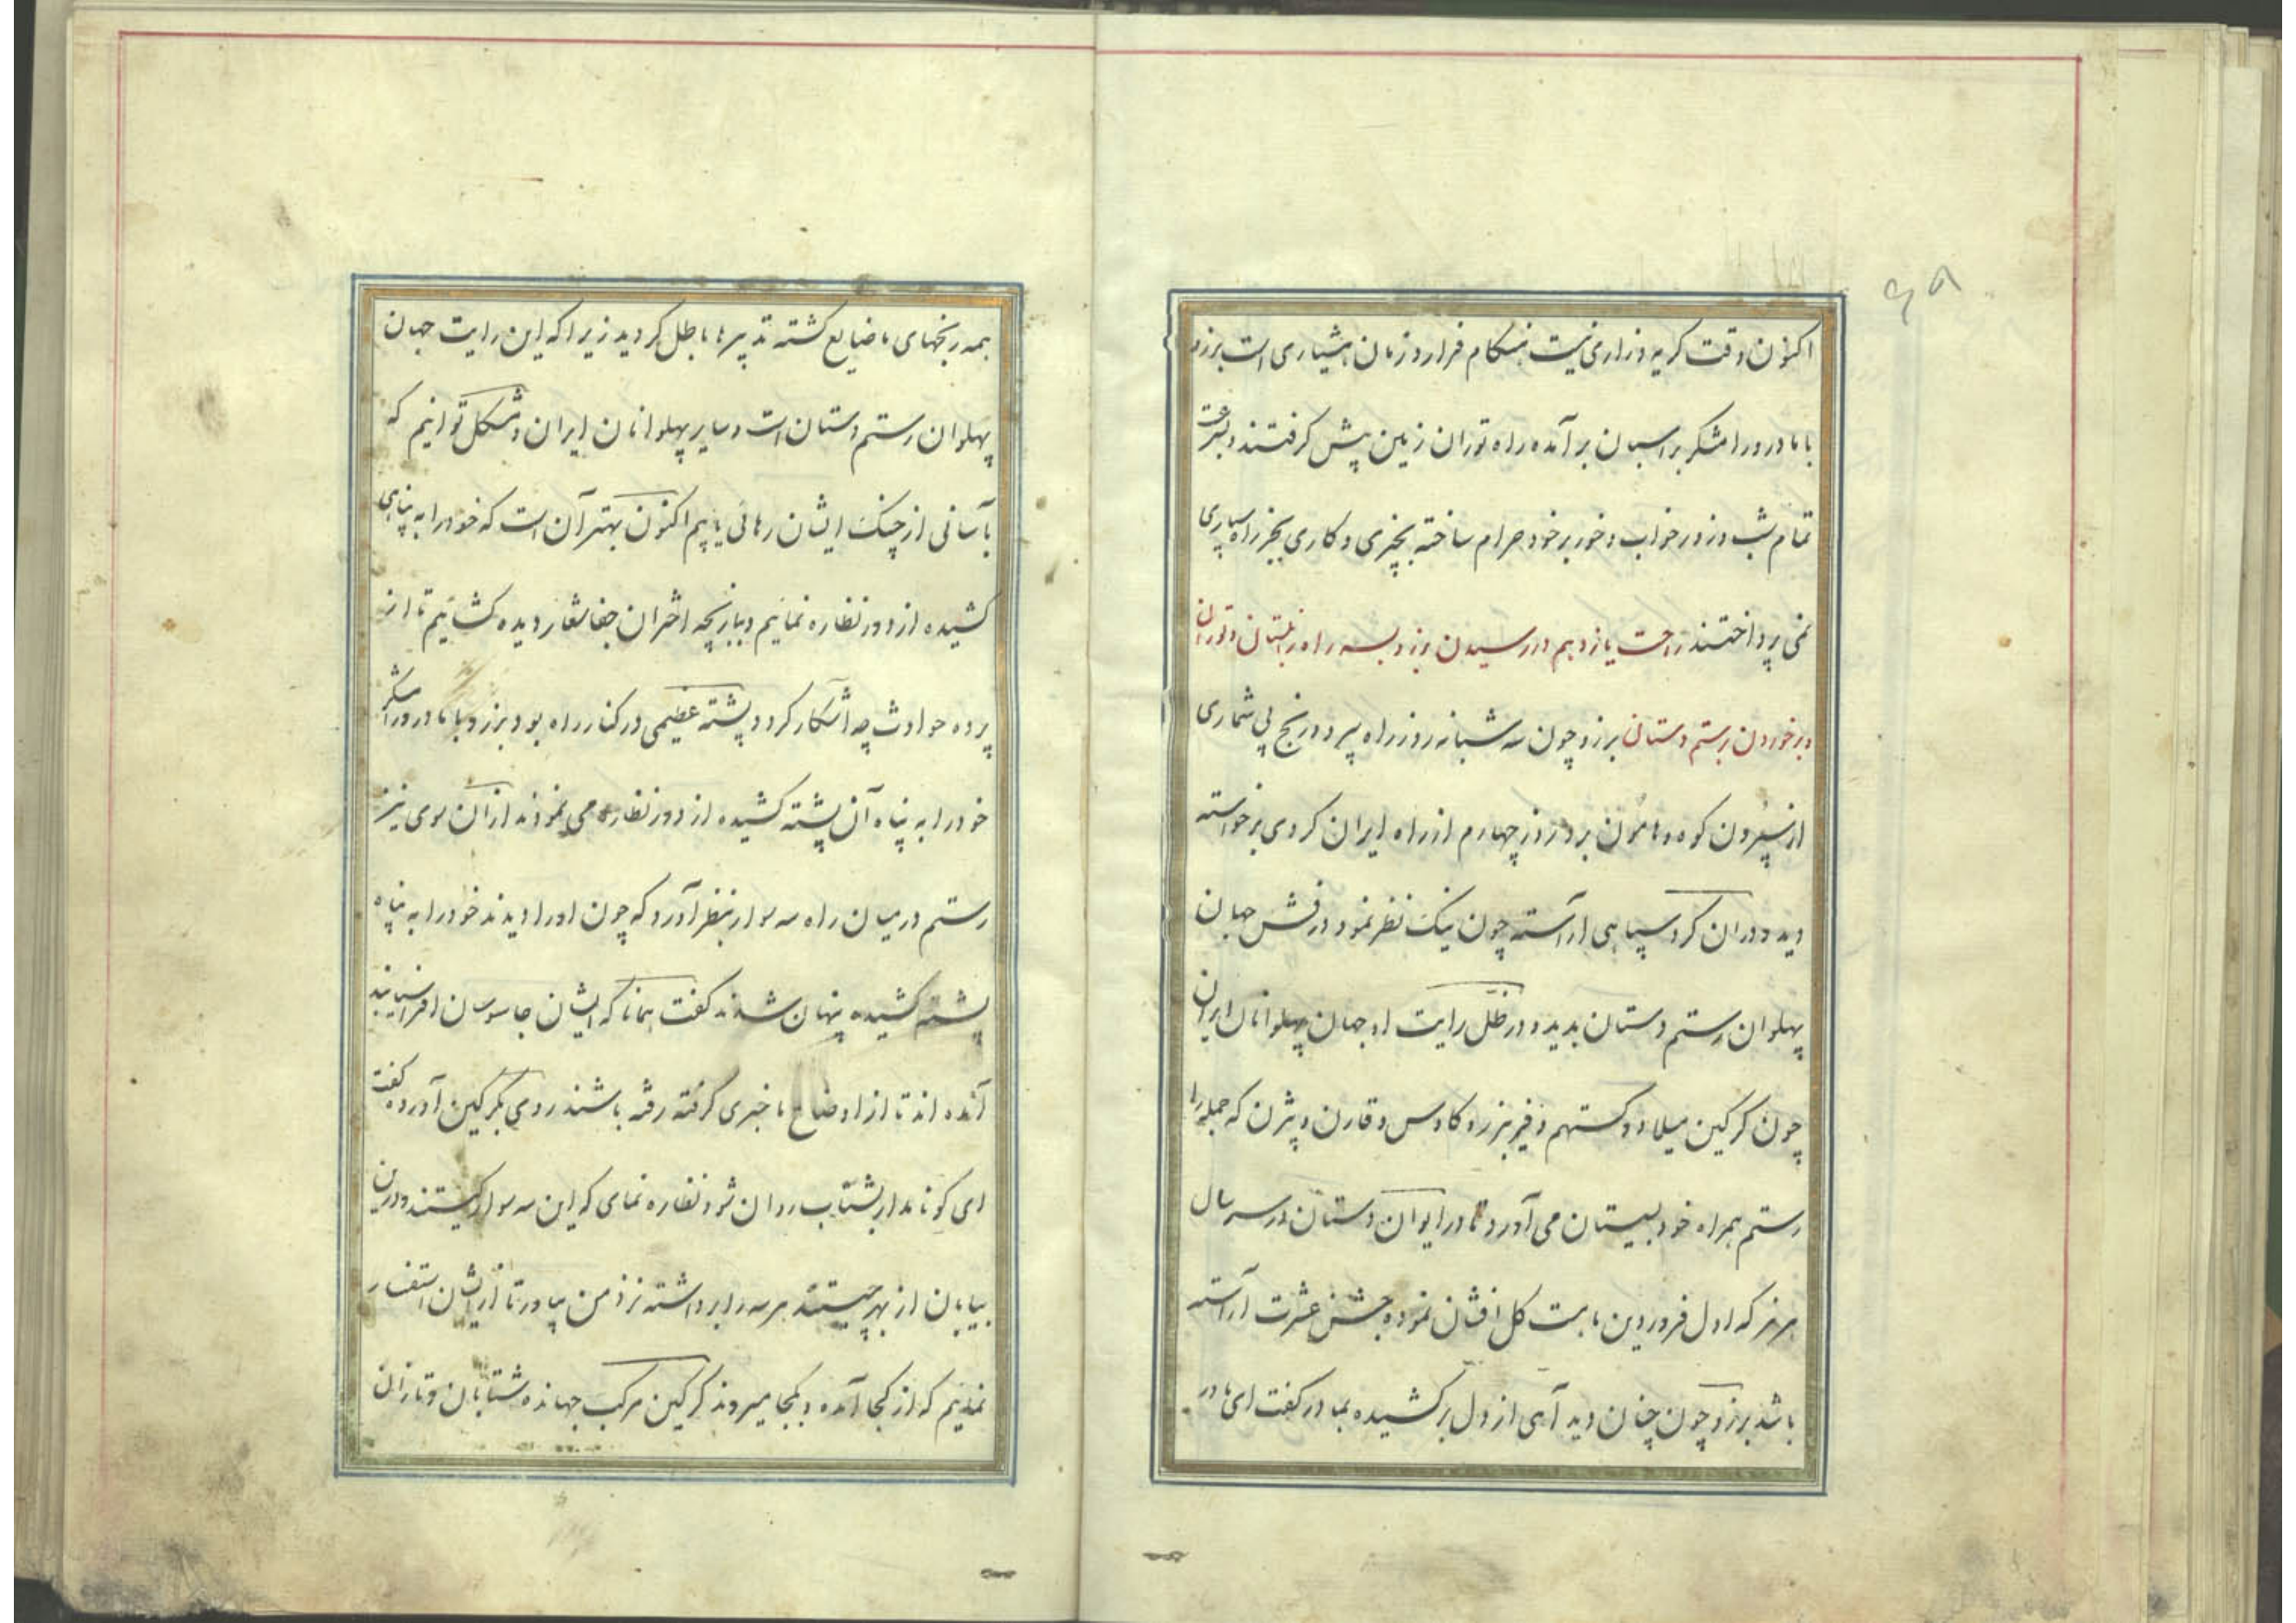 ۶۵
اکنون وقت گریه وزاری نیست هنگام فرار و زمان هشیاری است برزو
با مادر و رامشگر بر اسبان بر آمده راه توران زمین پیش گرفتند و بسرعت
تمام شب و روز خواب و خور بر خود حرام ساخته بچیزی و کاری بجز راه سپاری
نمی پرداختند راحت یازدهم در رسیدن برزو بسه راه زابلستان و توران
و بر خوردن برستم دستان برزو چون سه شبانه روز راه سپرد و رنج بی شماری
از سپردن کوه و هامون برد روز چهارم از راه ایران کردی برخواسته
دید و در آن کرد سپاهی آراسته چون نیک نظر نمود درفش جهان
پهلوان رستم دستان بدید و در ظل رایت او جهان پهلوانان ایران
چون کرکین میلاد و کستهم و فریبرز و کاوس و قارن و بیژن که جمله را
رستم همراه خود بسیستان می آورد تا در ایوان دستان در سر سال
هرمز که اول فروردین ماست کل افشان نموده جشن عشرت آراسته
باشد برزو چون چنان دید آهی از دل بر کشیده بمادر گفت ای مادر
همه رنجهای ما ضایع کشته تدبیرها باطل کردید زیرا که این رایت جهان
پهلوان رستم دستان است و سایر پهلوانان ایران و مشکل توانیم که
بآسانی از چنک ایشان رهائی یابیم اکنون بهتر آن است که خود را به پناهی
کشیده از دور نظاره نمائیم و ببازیچه اختران جفا شعار دیده کشائیم تا از
پرده حوادث چه آشکار کردد پشته عظیمی در کنار راه بود برزو با مادر و رامشگر
خود را به پناه آن پشته کشیده از دور نظاره می نمودند از آن سوی نیز
رستم در میان راه سه سوار بنظر آورد که چون او را دیدند خود را به پناه
پشته کشیده پنهان شدند گفت همانا که ایشان جاسوسان افراسیابند
آمده اند تا از اوضاع ما خبری گرفته رفته باشند روی بکرکین آورده گفت
ای کو نامدار بشتاب روان شو و نظاره نمای که این سه سوار کیستند و در این
بیابان از بهر چیستند هر سه را برداشته نزد من بیاور تا از ایشان استفسار
نمائیم که از کجا آمده و بکجا میروند کرکین مرکب جهانده شتابان و تازان